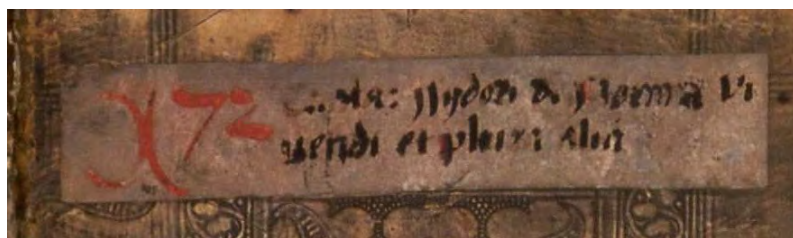 X 72 Ysidori de Norma Vi
uendi et plura alia